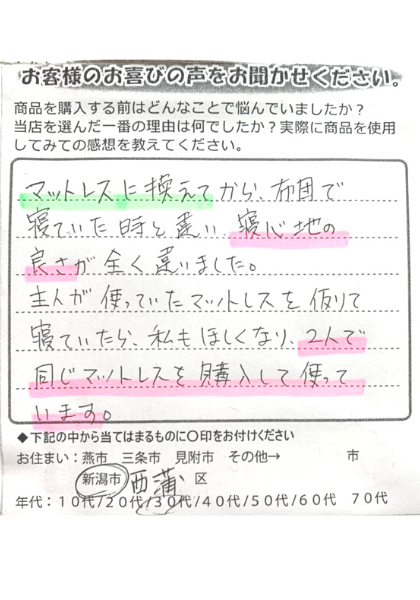 お客様のお喜びの声をお聞かせください。
商品を購入する前はどんなことで悩んでいましたか？
当店を選んだ一番の理由は何でしたか？実際に商品を使用
してみての感想を教えてください。
マットレスに換えてから、布団で
寝ていた時と違い 寝心地の
良さが全く違いました。
主人が使っていたマットレスを仮りて
寝ていたら、私もほしくなり、2人で
同じマットレスを購入して使って
います。
◆下記の中から当てはまるものに〇印をお付けください
お住まい：燕市 三条市 見附市 その他→ 市
新潟市 西蒲 区
年代：１０代/２０代/３０代/４０代/５０代/６０代 ７０代